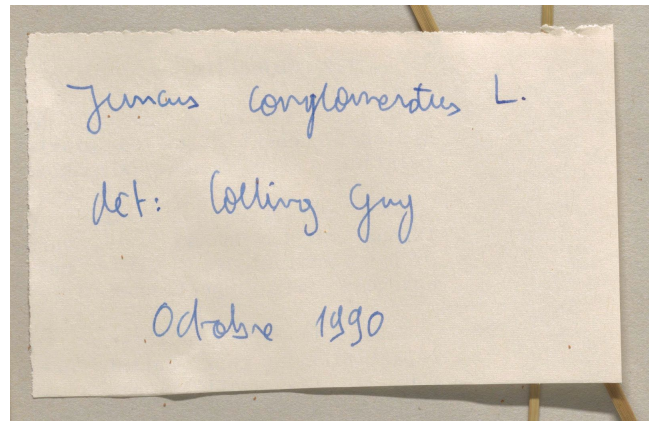 Juncus conglomeratus L.
dét: Colling Guy
Octobre 1990